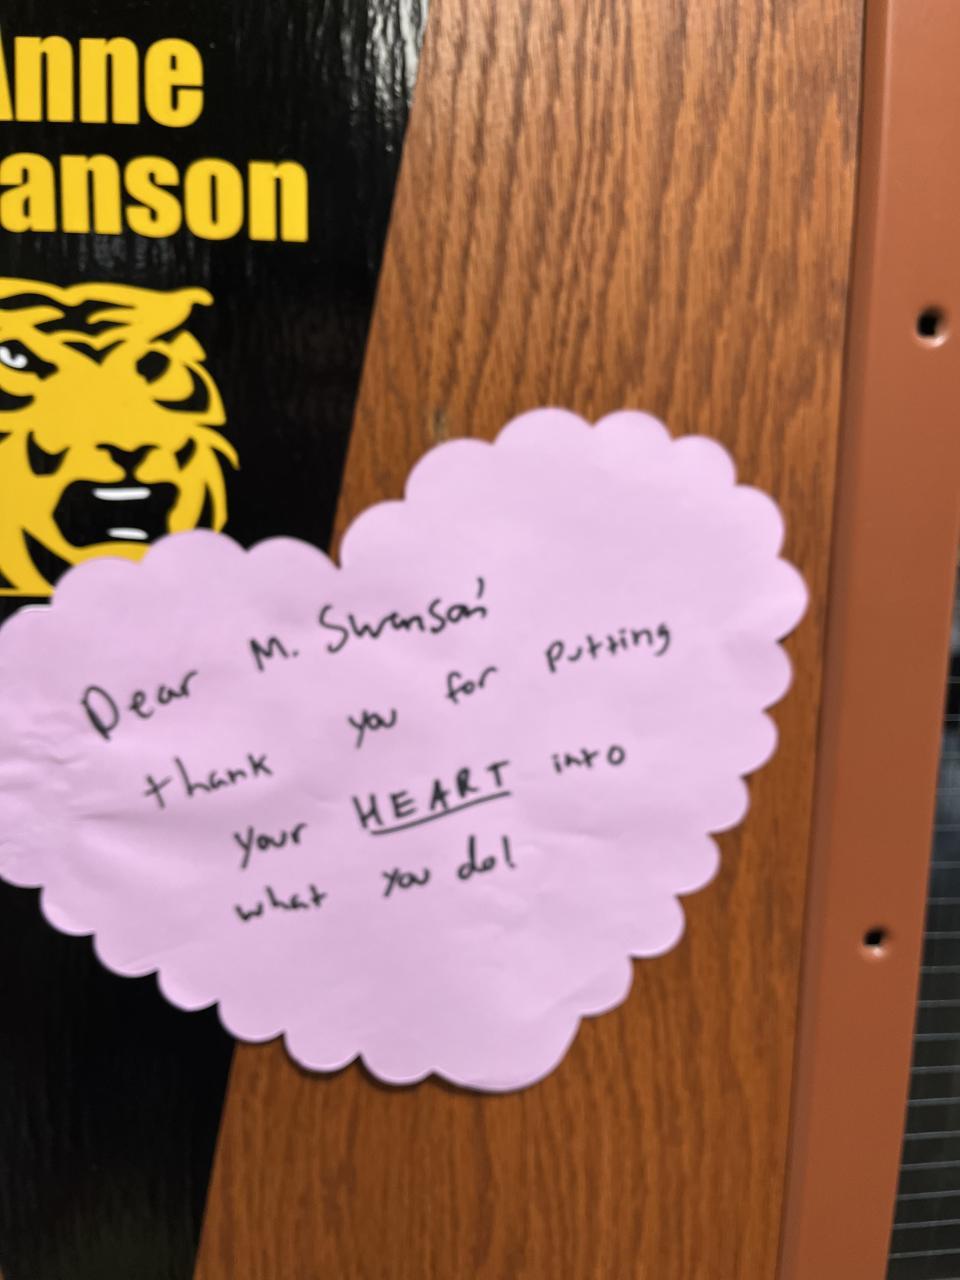 Anne
anson
Dear M. Swanson'
thank you for putting
your HEART into
what you do!